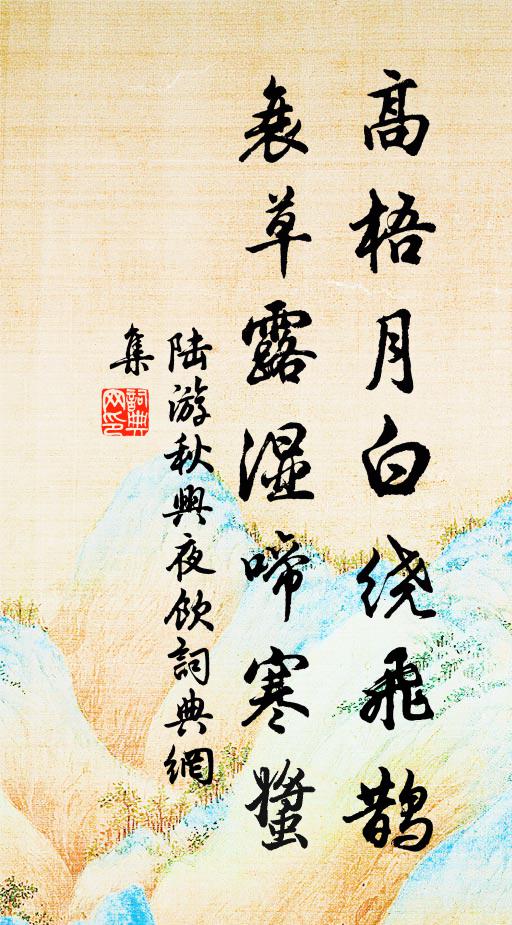 高梧月白绕飛鹊
衰草露湿啼寒螿
陆游秋興夜饮詞典網
集
詞典
网印